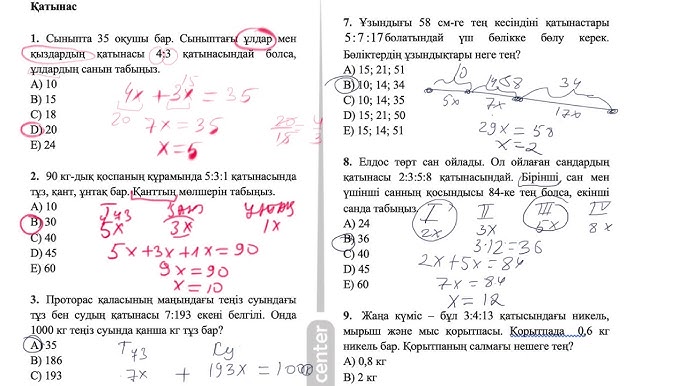 Қатынас
1. Сыныпта 35 оқушы бар. Сыныптағы ұлдар мен
қыздардың қатынасы 4:3 қатынасындай болса,
ұлдардың санын табыңыз.
A) 10
B) 15
C) 18
D) 20
E) 24
4x + 3x = 35
20
15
7x = 35
x = 5
20/15 = 4/3
2. 90 кг-дық қоспаның құрамында 5:3:1 қатынасында
тұз, қант, ұнтақ бар. Қанттың мөлшерін табыңыз.
A) 10
B) 30
C) 40
D) 45
E) 60
Тұз қант ұнтақ
5x 3x 1x
5x + 3x + 1x = 90
9x = 90
x = 10
3. Проторас қаласының маңындағы теңіз суындағы
тұз бен судың қатынасы 7:193 екені белгілі. Онда
1000 кг теңіз суында қанша кг тұз бар?
A) 35
B) 186
C) 193
Тұз Су
7x + 193x = 1000
center
7. Ұзындығы 58 см-ге тең кесіндіні қатынастары
5:7:17 болатындай үш бөлікке бөлу керек.
Бөліктердің ұзындықтары неге тең?
A) 15; 21; 51
B) 10; 14; 34
C) 10; 14; 35
D) 15; 21; 50
E) 15; 14; 51
10 14 58 34
5x 7x 17x
29x = 58
x = 2
8. Елдос төрт сан ойлады. Ол ойлаған сандардың
қатынасы 2:3:5:8 қатынасындай. Бірінші сан мен
үшінші санның қосындысы 84-ке тең болса, екінші
санда табыңыз.
A) 24
B) 36
C) 40
D) 45
E) 60
I II III IV
2x 3x 5x 8x
3·12 = 36
2x + 5x = 84
7x = 84
x = 12
9. Жаңа күміс – бұл 3:4:13 қатысындағы никель,
мырыш және мыс қорытпасы. Қорытпада 0,6 кг
никель бар. Қорытпаның салмағы нешеге тең?
A) 0,8 кг
B) 2 кг